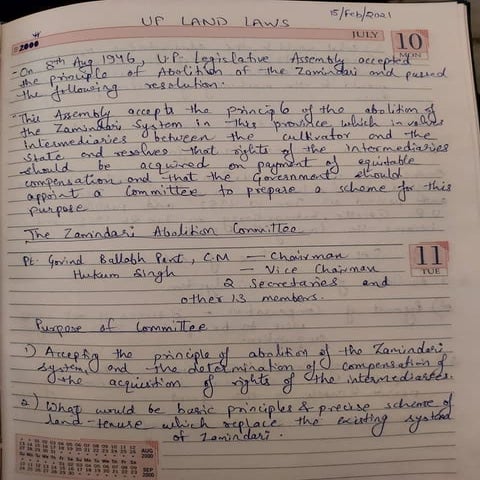 UP LAND LAWS
15/Feb/2021
2000
JULY
10
MON
- On 8th Aug 1946, U.P. Legislative Assembly accepted
the principle of Abolition of the Zamindari and passed
the following resolution.
"This Assembly accepts the principle of the abolition of
the Zamindari System in this province which involves
Intermediaries between the cultivator and the
State and resolves that rights of the Intermediaries
should be acquired on payment of equitable
compensation and that the Government should
appoint a Committee to prepare a scheme for this
purpose
The Zamindari Abolition Committee
11
TUE
Pt. Govind Ballabh Pant, C.M — Chairman
Hukum Singh — Vice Chairman
2 Secretaries and
other 13 members.
Purpose of Committee
1) Accepting the principle of abolition of the Zamindari
system and the determination of compensation of
the acquisition of rights of the intermediaries.
2) What would be basic principles & precise scheme of
land-tenure which replace the existing system
of Zamindari.
AUG
2000
SEP
2000